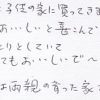 子供の家に買ってきま
おいしいと喜んで
とりとしていて
でもおいしいで〜
は両親の育った家